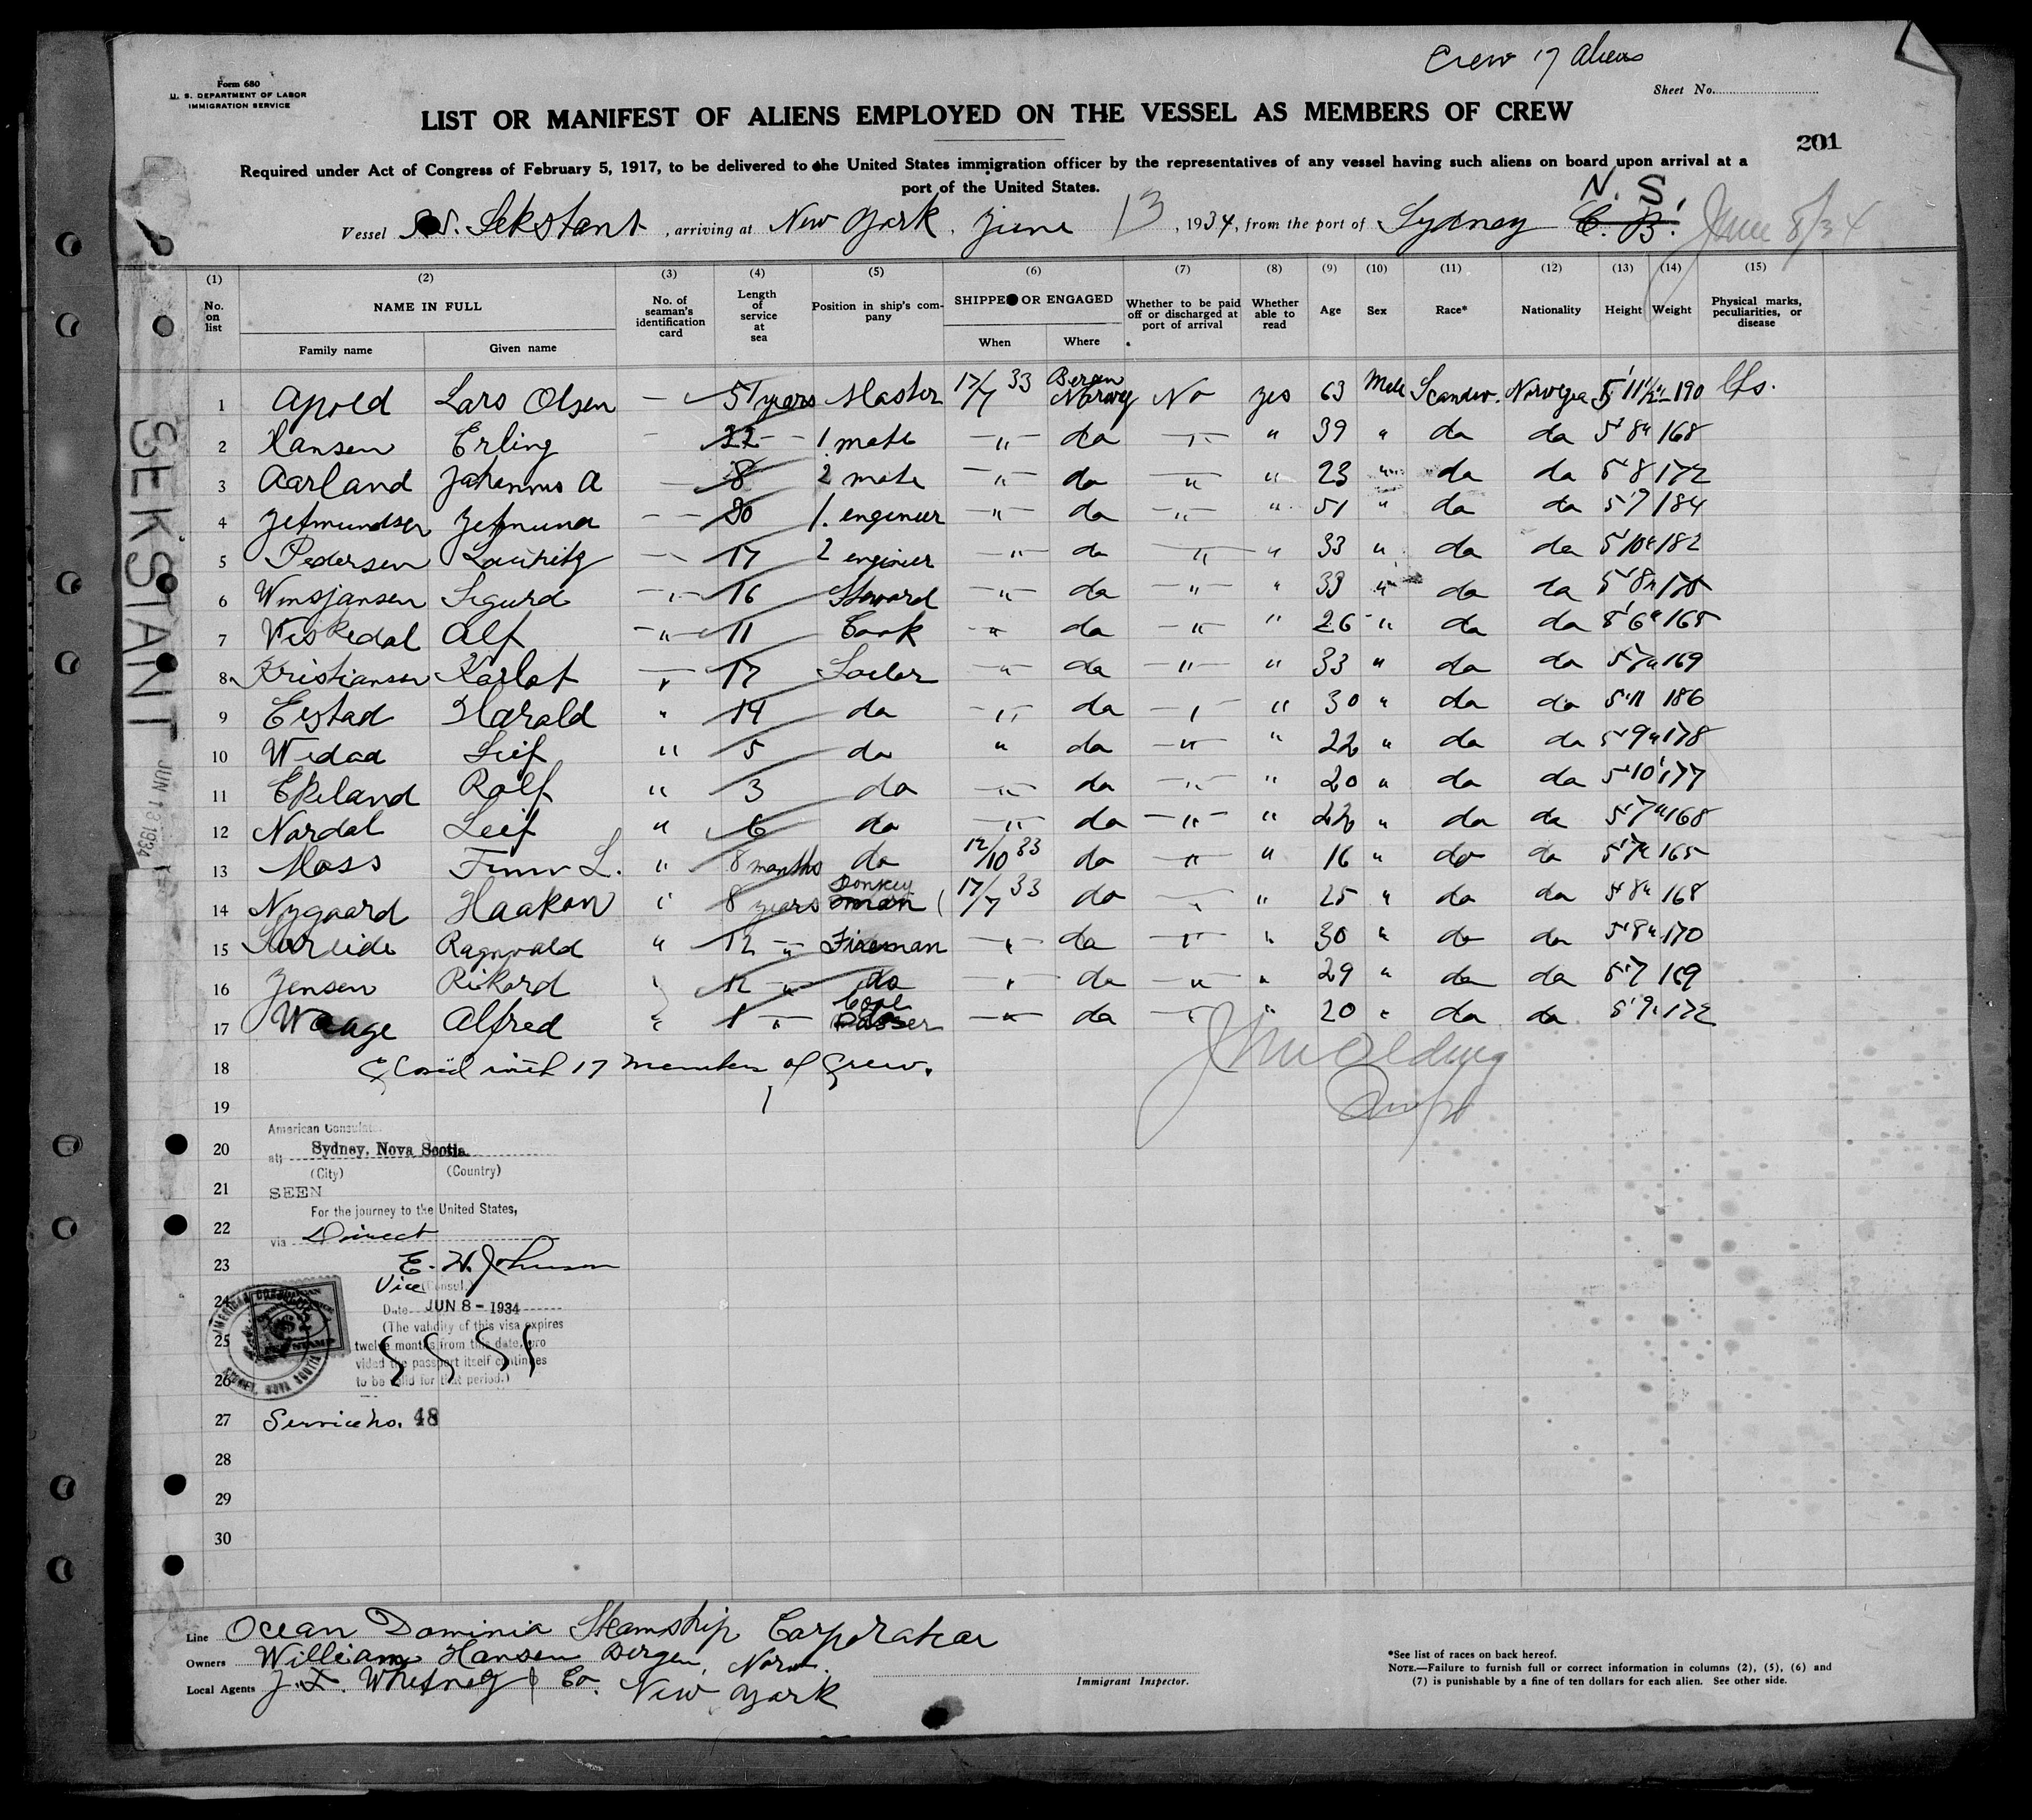 Crew 17 aliens
Form 680
U. S. DEPARTMENT OF LABOR
IMMIGRATION SERVICE
Sheet No.
LIST OR MANIFEST OF ALIENS EMPLOYED ON THE VESSEL AS MEMBERS OF CREW
201
Required under Act of Congress of February 5, 1917, to be delivered to the United States immigration officer by the representatives of any vessel having such aliens on board upon arrival at a
port of the United States.
N. S.
Vessel Sekstant, arriving at New York, June 13, 1934, from the port of Sydney C. B. June 8/34
(1) (2) (3) (4) (5) (6) (7) (8) (9) (10) (11) (12) (13) (14) (15)
No. on list NAME IN FULL No. of seaman's identification card Length of service at sea Position in ship's company SHIPPED OR ENGAGED Whether to be paid off or discharged at port of arrival Whether able to read Age Sex Race* Nationality Height Weight Physical marks, peculiarities, or disease
Family name Given name When Where
1 Apold Lars Olsen — 51 years Master 17/7 33 Bergen Norway No yes 63 Male Scandv. Norwegia 5'11½" 190
2 Hansen Erling 22 1. mate — " — da — " — " 39 " da da 5'8" 168
3 Aarland Johannes A 8 2 mate — " — da — " — " 23 " da da 5'8 172
4 — — 30 1. engineer — " — da — " — " 51 " da da 5'7 184
5 Pedersen Lauritz — 17 2 engineer — " — da — " — " 33 " da da 5'10" 182
6 Sigurd — " — 16 Steward — " — da " " 33 " da da 5'8"
7 Viskedal Alf — " — 11 Cook " da — " — " 26 " da da 5'6" 165
8 Kristiansen Karlot 17 Sailor — " — da — " — " 33 " da da 5'7" 169
9 Eystad Harald " 14 da — " — da — " — " 30 " da da 5'11 186
10 Wedaa Leif " 5 da " da — " — " 22 " da da 5'9" 178
11 Ekeland Rolf " 3 da — " — da — " — " 20 " da da 5'10" 177
12 Nordal Leif " 6 da — " — da — " — " 22 " da da 5'7" 168
13 Moss Finn L. " 8 months da 12/10 33 da — " — " 16 " da da 5'7" 165
14 Nygaard Haakon " 8 years Donkeyman 17/7 33 da — " — " 25 " da da 5'8" 168
15 Ragnvald " 12 — " Fireman — " — da — " — " 30 " da da 5'8" 170
16 Jensen Rikard — " da — " — da — " — " 29 " da da 5'7 169
17 Waage Alfred " 1 — " Coal Passer — " — da — " — " 20 " da da 5'9" 172
18 Closed with 17 members of crew.
19
American Consulate
20 at: Sydney, Nova Scotia.
(City) (Country)
21 SEEN
For the journey to the United States,
22 via Direct
23 E. H. Johnson
Vice Consul.
24 Date JUN 8 - 1934
(The validity of this visa expires
25 twelve months from this date, pro
vided the passport itself continues
26 to be valid for that period.)
AMERICAN CONSULATE
SYDNEY, NOVA SCOTIA
27 Service No. 48
28
29
30
SEKSTANT
JUN 13 1934
Line Ocean Dominia Steamship Corporation
Owners William Hansen Bergen, Norw.
Local Agents J. F. Whitney & Co. New York
Immigrant Inspector.
*See list of races on back hereof.
NOTE.—Failure to furnish full or correct information in columns (2), (5), (6) and
(7) is punishable by a fine of ten dollars for each alien. See other side.